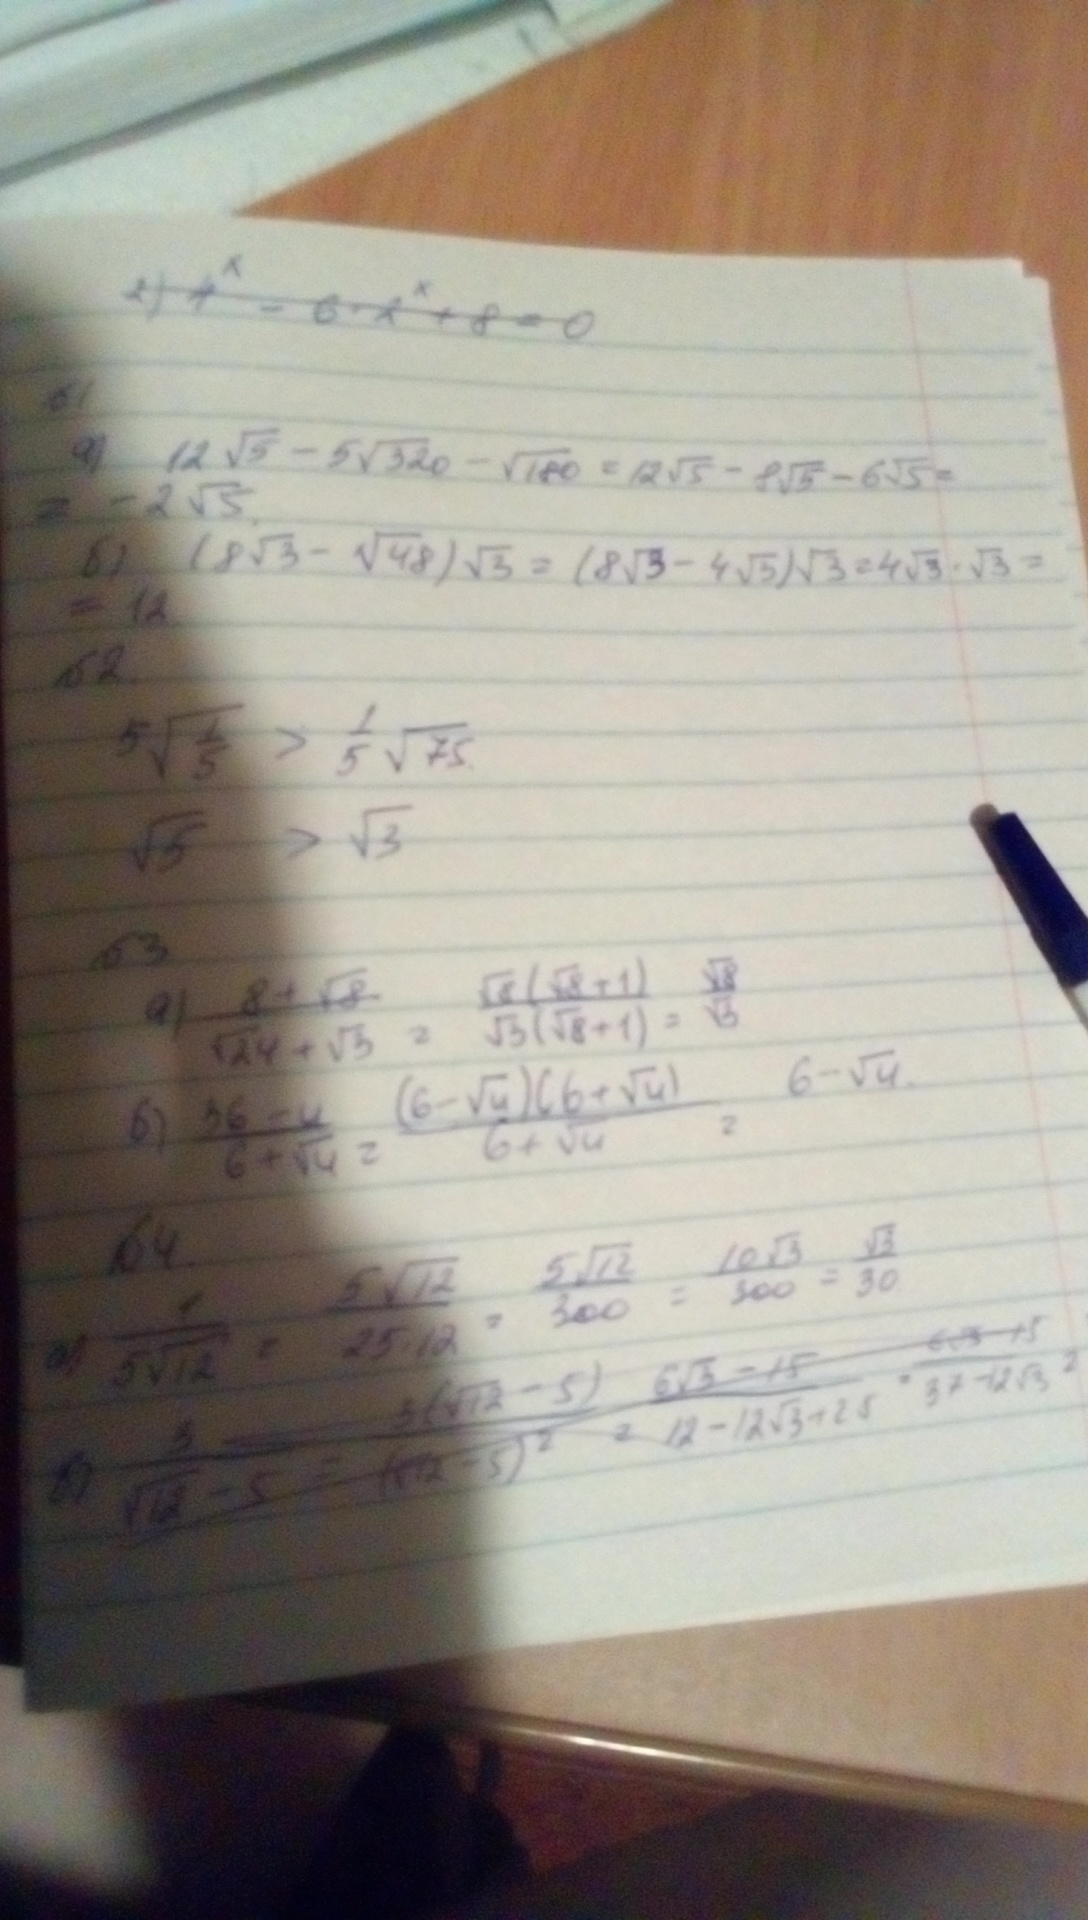 2) 4^x - 6·2^x + 8 = 0
б1
а) 12√5 - 5√320 - √180 = 12√5 - 8√5 - 6√5 =
= -2√5.
б) (8√3 - √48)√3 = (8√3 - 4√5)√3 = 4√3·√3 =
= 12
б2.
5√(1/5) > 1/5 √75.
√5 > √3
б3
а) (8+√8)/(√24+√3) = (√8(√8+1))/(√3(√8+1)) = √8/√3
б) (36-4)/(6+√4) = ((6-√4)(6+√4))/(6+√4) = 6-√4.
б4.
а) 1/(5√12) = (5√12)/(25·12) = (5√12)/300 = (10√3)/300 = √3/30
б) 3/(√12-5) = (3(√12-5))/(√12-5)² = (6√3-15)/(12-12√3+25) = (6√3-15)/(37-12√3) =